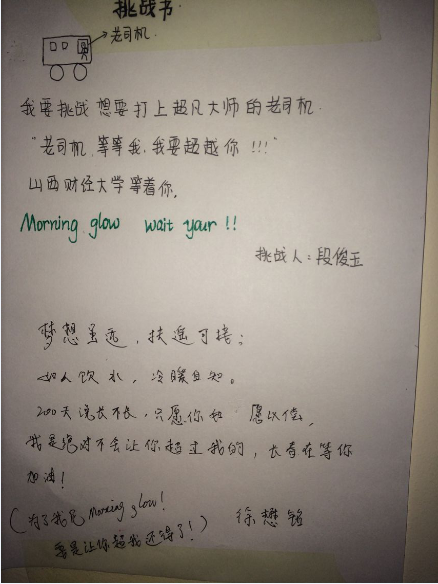 挑战书.
老司机.
我要挑战 想要打上超凡大师的老司机.
"老司机,等等我,我要超越你!!!"
山西财经大学等着你.
Morning glow wait your !!
挑战人:段俊玉
梦想虽远,扶遥可接;
如人饮水,冷暖自知。
200天说长不长,只愿你和 愿以偿,
我是绝对不会让你超过我的,长春在等你
加油!
Morning glow!
要是让你超我还得了!)
徐懋铭